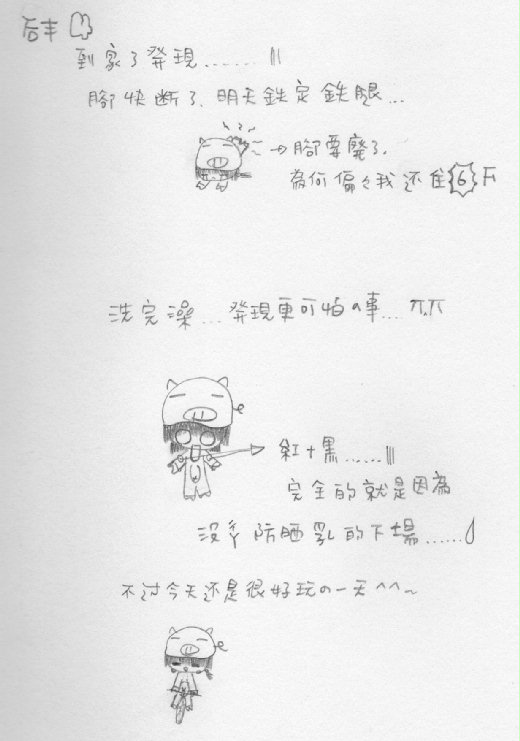 后丰
到家了發現......
腳快断了. 明天鉄定鉄腿...
→腳要廢了.
為何偏々我还住6F
洗完澡...發現更可怕の事... π.π
紅+黑......
完全的就是因為
沒擦防晒乳的下場......
不过今天还是很好玩の一天^^~